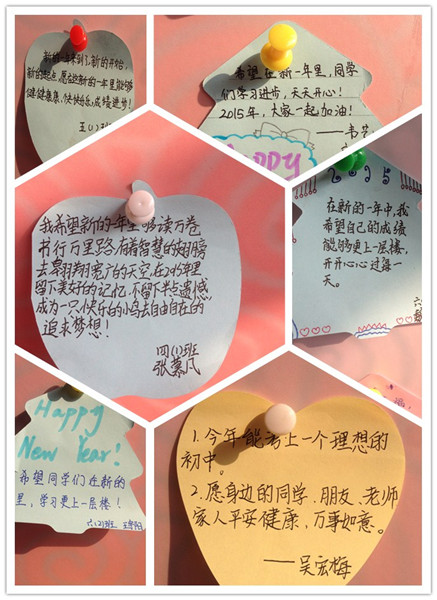 新的一年来到了,新的开始,
新的起点,愿我新的一年能够
健健康康,快快乐乐,成绩进步!
五(1)班
希望在新一年里,同学
们学习进步,天天开心!
2015年,大家一起加油!
Happy
我希望新的一年里够读万卷
书行万里路,有着智慧的翅膀
去翱翔宽广的天空,在2015年里
留下美好的记忆,不留下半点遗憾,
成为一只快乐的小鸟去自由自在的
追求梦想!
四(1)班
张慕凡
2015
在新的一年中,我
希望自己的成绩
能够更上一层楼,
开开心心过每一
天。
Happy
New Year!
希望同学们在新的
里,学习更上一层楼!
六(2)班
1.今年能考上一个理想的
初中。
2.愿身边的同学、朋友、老师
家人平安健康,万事如意。
——吴宏梅